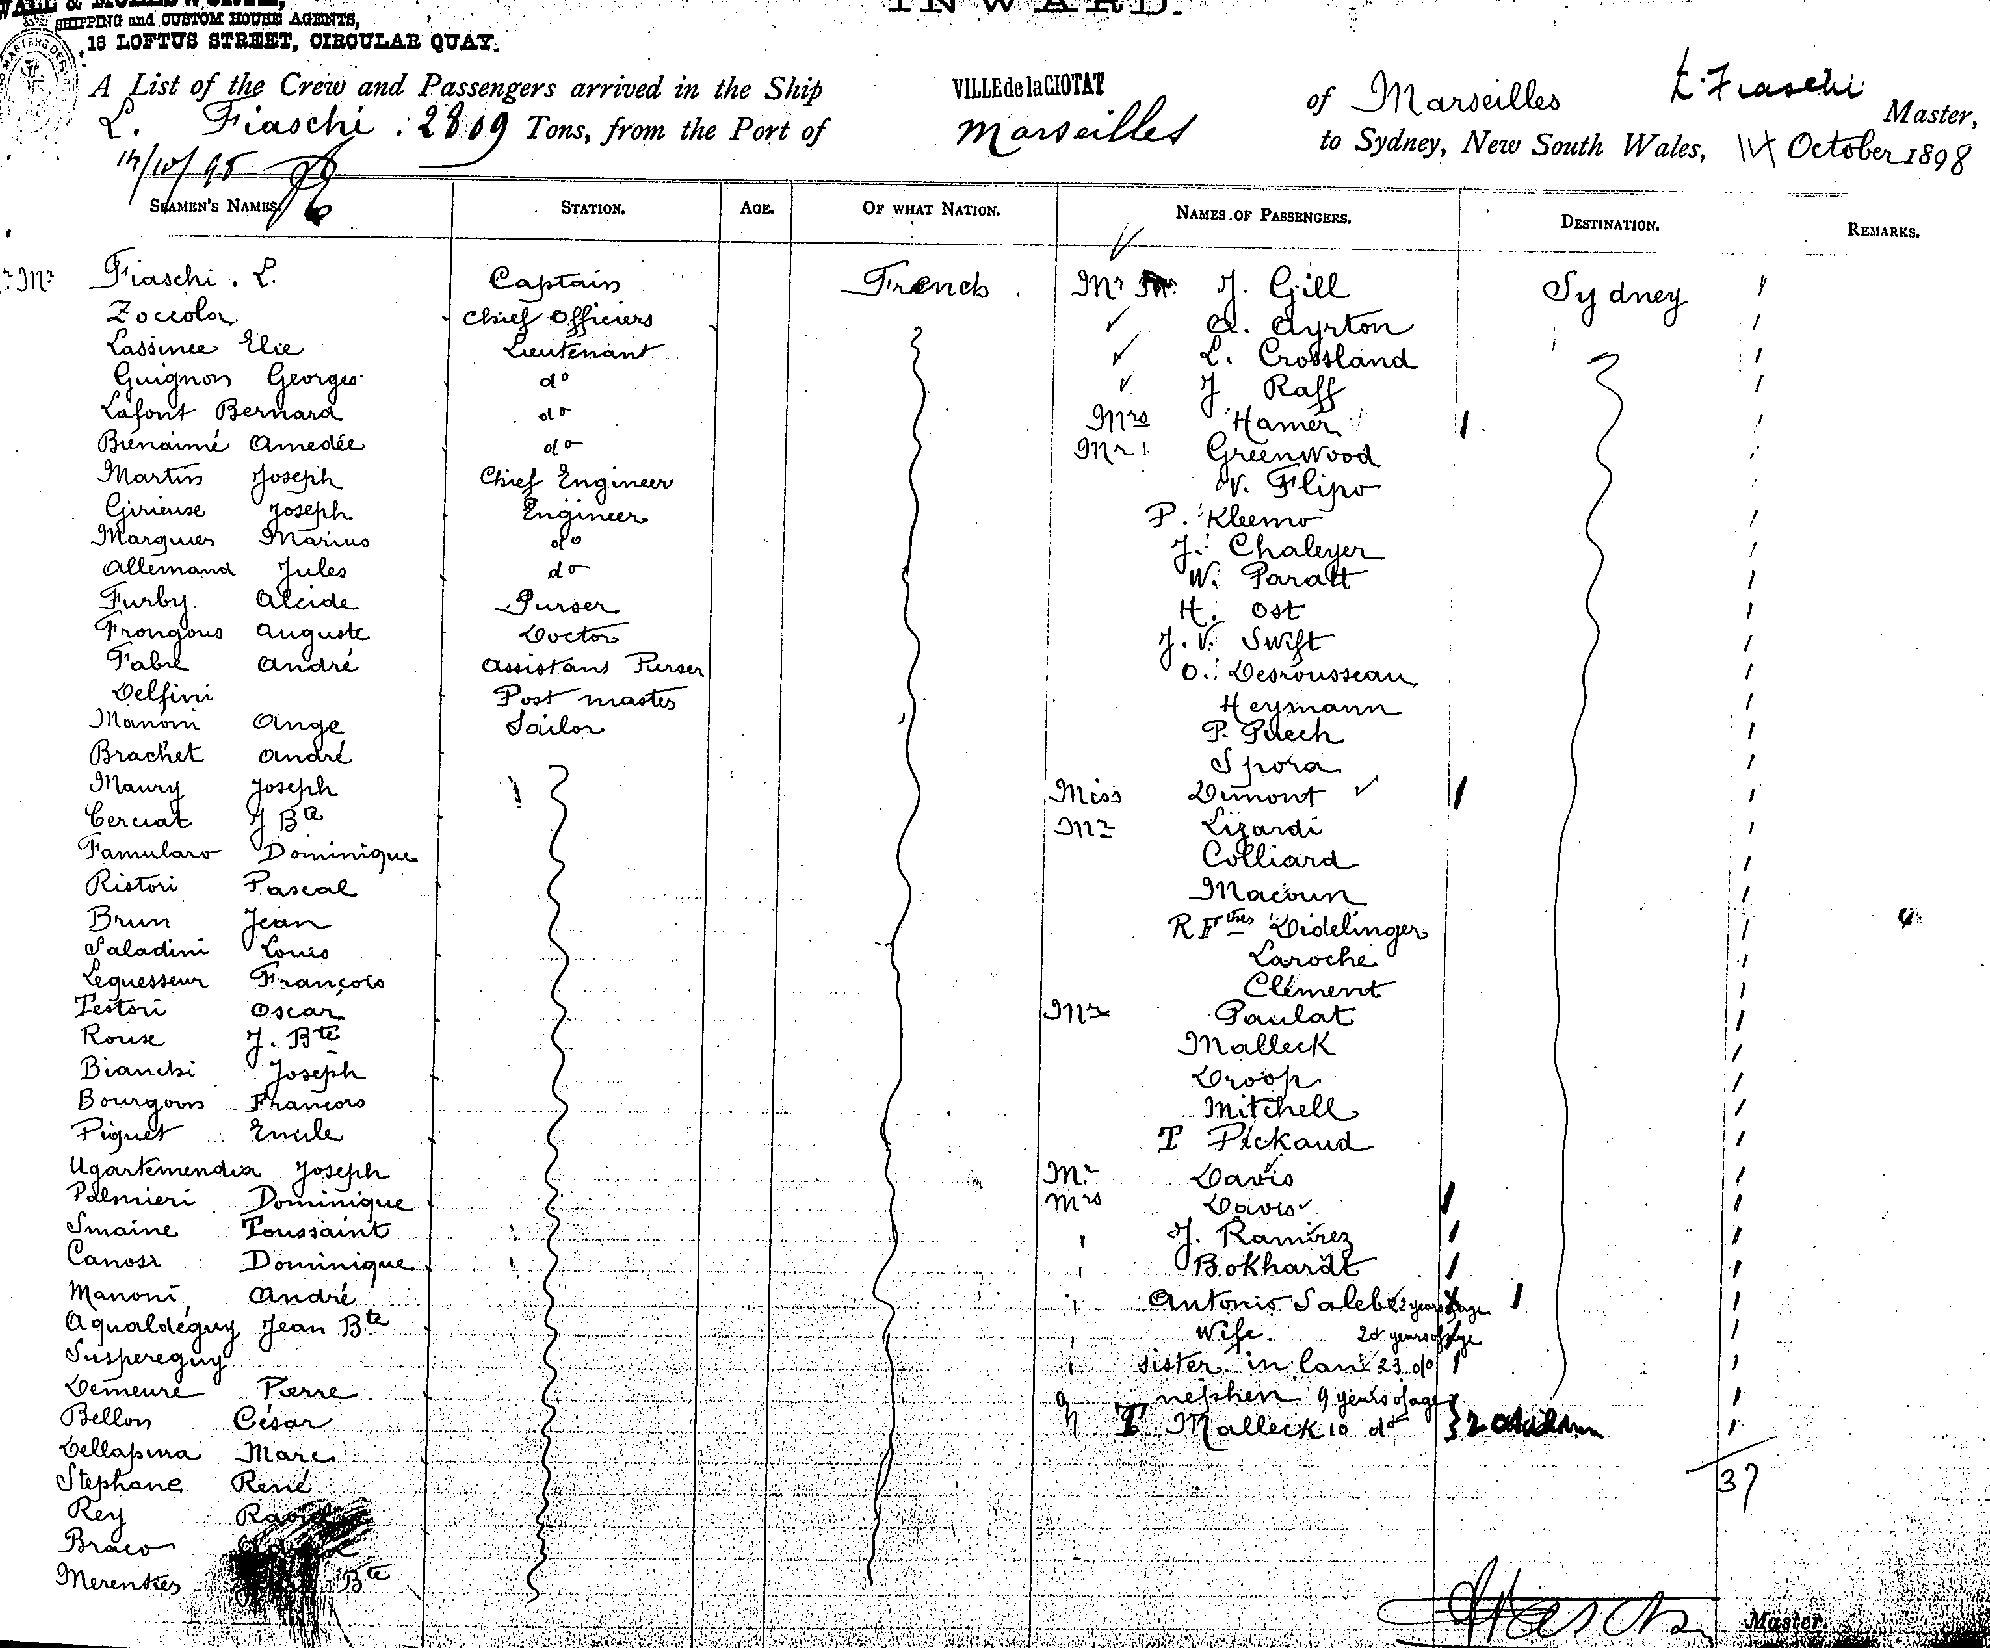 INWARD.
SHIPPING and CUSTOM HOUSE AGENTS,
18 LOFTUS STREET, CIRCULAR QUAY.
A List of the Crew and Passengers arrived in the Ship VILLE de la CIOTAT of Marseilles L. Fiaschi Master,
L. Fiaschi. 2809 Tons, from the Port of Marseilles to Sydney, New South Wales, 14 October 1898
SEAMEN'S NAMES. STATION. AGE. OF WHAT NATION. NAMES OF PASSENGERS. DESTINATION. REMARKS.
Mr Fiaschi. L. Captain French. Mr J. Gill Sydney
Zoccola Chief Officiers A. Ayrton
Lassinee Elie Lieutenant L. Crossland
Guignon Georges do J Raff
Lafont Bernard do Mrs Hamer
Bienaimé Amedée do Mr Greenwood
Martin Joseph Chief Engineer V. Flipo
Girieuse Joseph Engineer P. Kleemo
Marques Marius do J. Chaleyer
Allemand Jules do W. Paratt
Furby Alcide Purser H. Ost
Frongous Auguste Doctor J. V. Swift
Fabre André Assistans Purser O. Desrousseau
Delfini Post master Heymann
Manoni Ange Sailor P. Puech
Brachet André Spora
Maury Joseph Miss Dumont
Cerciat J Bte Mr Lizardi
Famularo Dominique Colliard
Ristori Pascal Macoun
Brun Jean R Fres Didelinger
Saladini Louis Laroche
Lequesseur François Clément
Testori Oscar Mr Paulat
Rouse J. Bte Malleck
Bianchi Joseph Droop
Bourgouin Francois Mitchell
Piquet Emile T Pickaud
Ugartemendia Joseph Mr Davis
Palmieri Dominique Mrs Davis
Smaine Toussaint J. Ramirez
Canossi Dominique Bokhardt
Manoni André Antonio Saleb 22 years of age
Aqualdéguy Jean Bte Wife. 20 years of age
Suspereguy sister in law 23 do
Demeure Pierre nephew 9 years of age
Bellon César T Malleck 10 do } 2 children
Dellapina Marc
Stephane René 37
Rey
Braco
Merenties Bte
Master